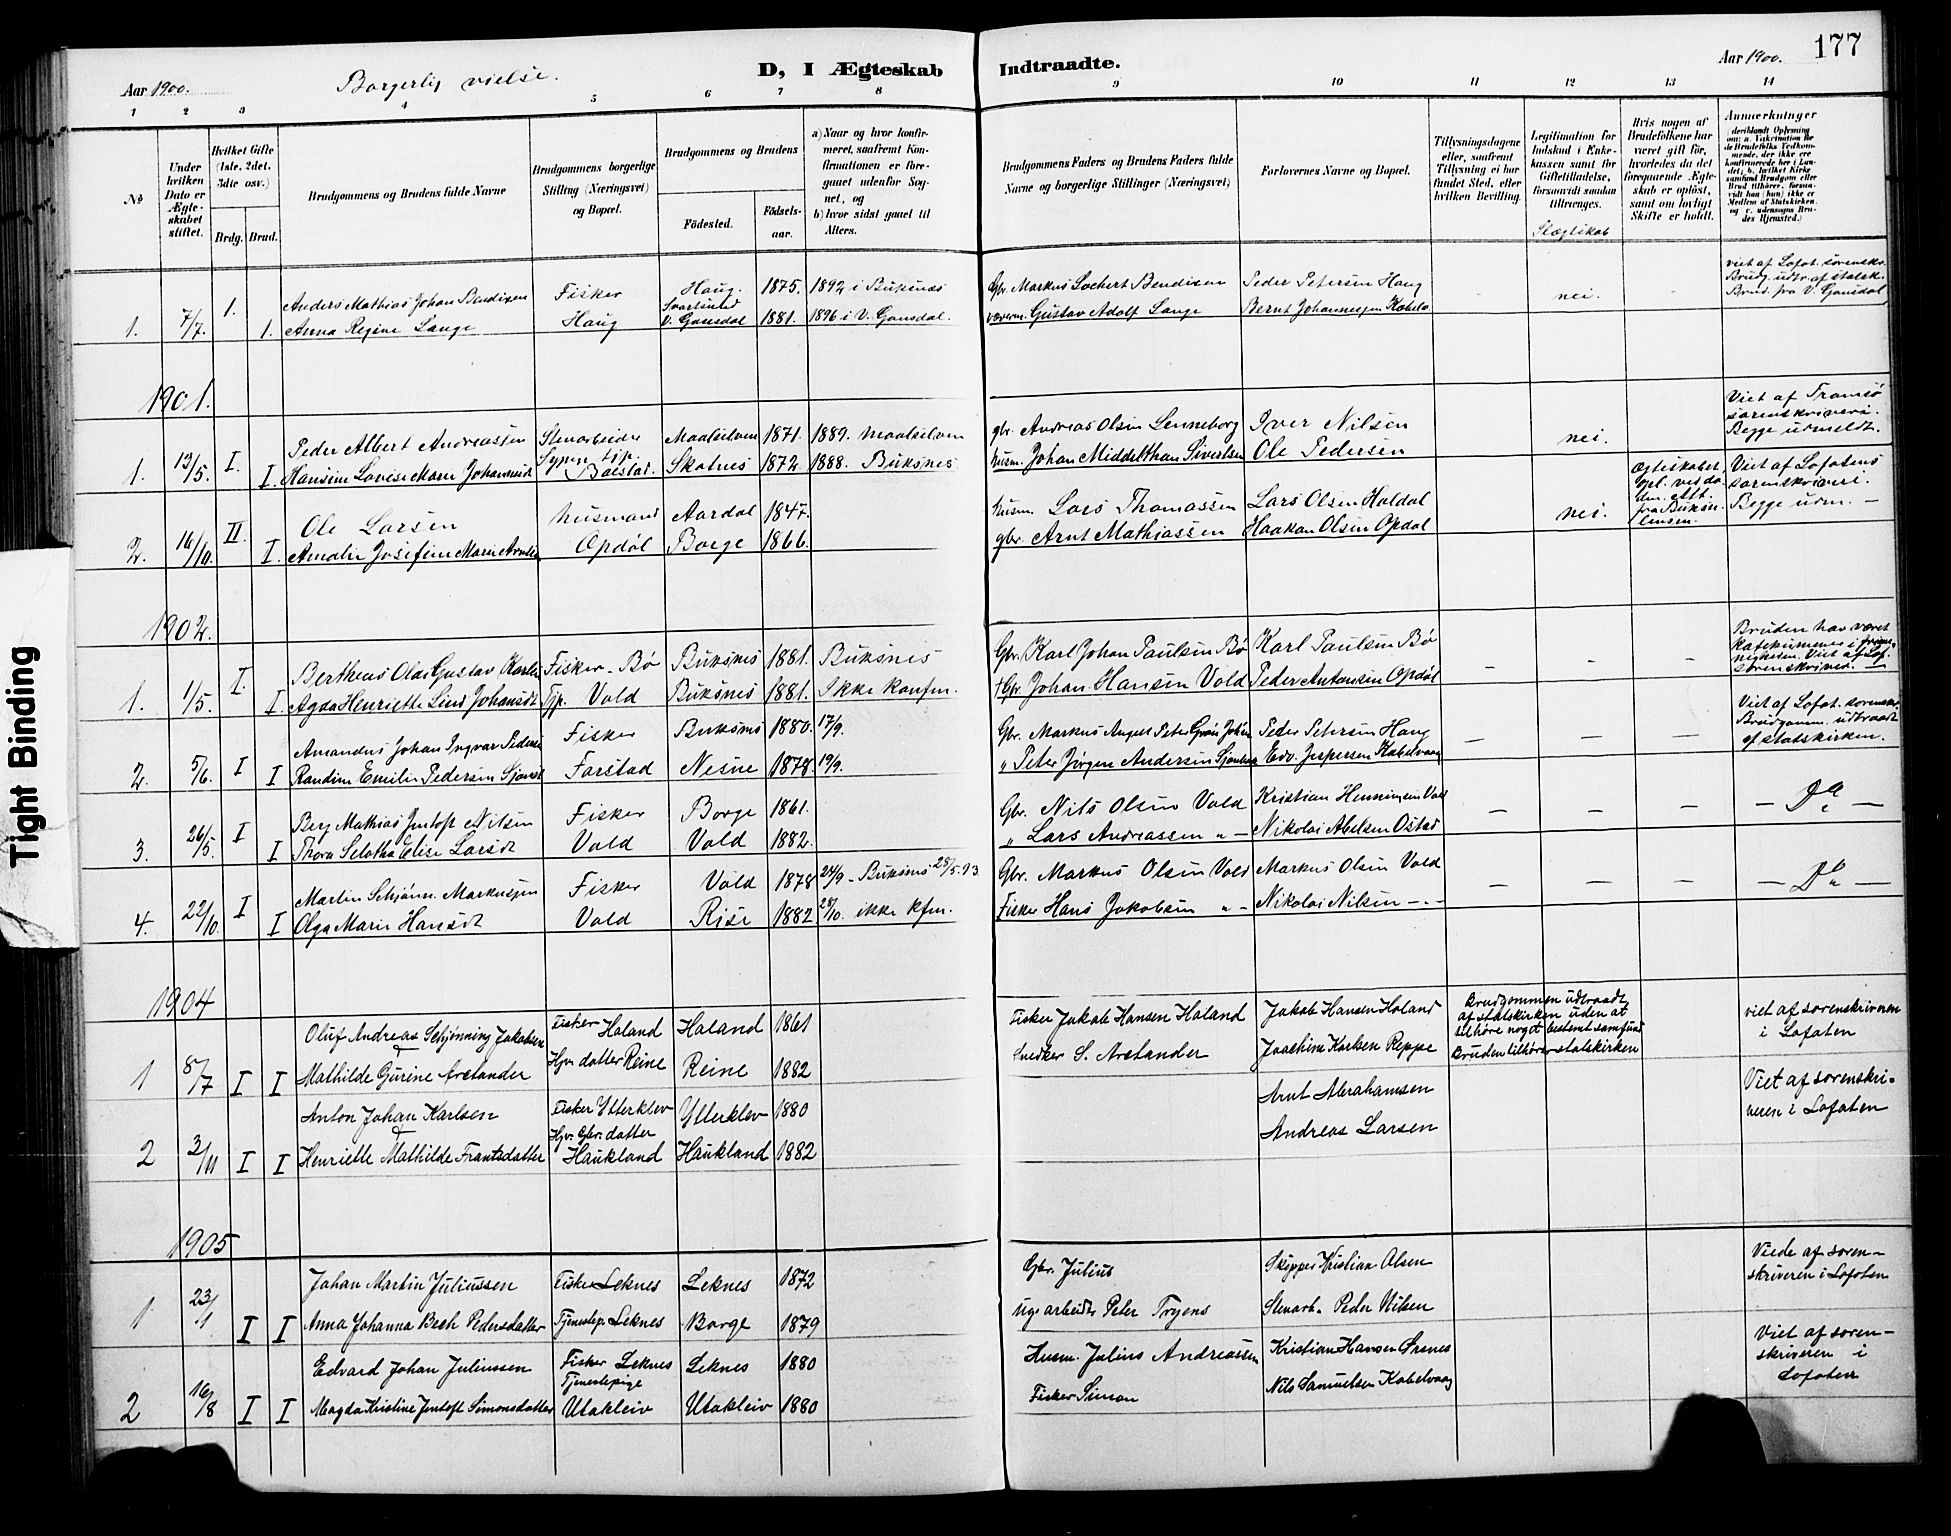 Tight Binding
Aar 1900.
Borgerlig vielse.
D, I Ægteskab Indtraadte.
Aar 1900.
177
1 2 3 4 5 6 7 8 9 10 11 12 13 14
№
Under hvilken Dato er Ægteskabet stiftet.
Hvilket Gifte (1ste, 2det, 3die osv.)
Brdg. Brud.
Brudgommens og Brudens fulde Navne
Brudgommens borgerlige Stilling (Næringsvei) og Bopæl.
Brudgommens og Brudens
Fødested.
Fødsels-aar.
a) Naar og hvor konfirmeret, saafremt Konfirmationen er foregaaet udenfor Sognet, og
b) hvor sidst gaaet til Alters.
Brudgommens Faders og Brudens Faders fulde Navne og borgerlige Stillinger (Næringsvei)
Forlovernes Navne og Bopæl.
Tillysningsdagene eller, saafremt Tillysning ei har fundet Sted, efter hvilken Bevilling.
Legitimation for Indskud i Enkekassen samt for Giftetilladelse, forsaavidt saadan tiltrænges.
Slægtskab
Hvis nogen af Brudefolkene har været gift før, hvorledes da det foregaaende Ægteskab er opløst, samt om lovligt Skifte er holdt.
Anmerkninger
1. 7/7. 1. Anders Mathias Johan Bendixen Fisker Haug. 1875. 1892 i Buksnæs Gbr. Markus Lochert Bendixen Peder Petersen Haug - nei. - viet af Lofot. sorenskr. Brudg. udtr. af statsk. Brud. fra V. Gausdal
1. Anna Regine Lange Haug Svartsund V. Gausdal 1881. 1896 i V. Gausdal. Gustav Adolf Lange Bernt Johannesen
1901.
1. 13/5. I. Peder Albert Andreassen Stenarbeider Maalselven 1871. 1889. Maalselven gbr. Andreas Olsen Lenneborg Iver Nilsen nei. Viet af Tromsø sorenskriveri. Begge udmeldt.
I. Hansine Lovise Marie Johannesd. Balstad. Skotnes 1872. 1888. Buksnes husm. Johan Middelthon Sivertsen Ole Pedersen
2. 16/11. II. Ole Larsen Husmand Aardal 1847. husm. Lars Thomassen Lars Olsen Holdal nei. Viet af Lofotens sorenskriveri. Begge udm. -
I. Amalie Josefine Marie Opdøl Borge 1866. gbr. Arnt Mathiassen Haakon Olsen Opdøl
1902.
1. 1/5. I. Bertheus Olai Gustav Karlsen Fisker - Bø Buksnes 1881. Buksnes Gbr. Karl Johan Paulsen Bø Karl Paulsen Bø - - - Bruden har været
I. Agda Henriette Lind Johansdt Tjp. Vold Buksnes 1881. Ikke konfm. †Gbr. Johan Hansen Vold Peder Antonsen Opdøl
2. 5/6. I Amandus Johan Ingvar Fisker Buksnes 1880. 17/9. Gbr. Markus August Peter Peder Petersen Haug - - - Viet af Lofot. sorenskr. Brudgomm. udtraadt af statskirken.
I Randine Emilie Pedersen Farstad Nesne 1878. 19/9. „ Peter Jørgen Andersen Edv. Jespersen Kabelvaag
3. 26/5. I Berg Mathias Jentoft Nilsen Fisker Borge 1861. Gbr. Nils Olsen Vold Kristian Henningsen Vold - - - - Do -
I Thora Selotha Elise Larsdt Vold Vold 1882. „ Lars Andreassen „ - Nikolai Abelsen Ostad
4. 22/10. I Martin Schjønn. Markussen Fisker Vold 1878 24/9 - Buksnes 25/5.93. Gbr. Markus Olsen Vold Markus Olsen Vold - - - - Do -
I Olga Marie Hansdt Vold Rise 1882 28/10. ikke kfm. Fisker Hans Jakobsen „ - Nikolai Nilsen - „ -
1904
Oluf Andreas Schjønning Jakobsen Fisker Holand Holand 1861 Fisker Jakob Hansen Holand Jakob Hansen Holand Brudgommen udtraadt af statskirken uden at tilhøre noget bestemt samfund viet af sorenskriveren i Lofoten
1 8/7 I I Mathilde Gurine Arstander Hjv. datter Reine Reine 1882 Snedker S. Arstander Joachim Karlsen Reppe Bruden tilhører statskirken
Anton Johan Karlsen Fisker Ytterklev Ytterklev 1880 Arnt Abrahamsen Viet af sorenskriveren i Lofoten
2 3/11 I I Henriette Mathilde Frantsdatter Hjv. Gbr. datter Haukland Haukland 1882 Andreas Larsen
1905
Johan Martin Juliussen Fisker Leknes Leknes 1872 Gbr. Julius Skipper Kristian Olsen Viede af sorenskriveren i Lofoten
1 23/1. I I Anna Johanna Bech Pedersdatter Tjenestep. Leknes Borge 1879 Peter Tryens Stenarb. Peder Nilsen
Edvard Johan Juliussen Fisker Leknes Leknes 1880 Husm. Julius Andreassen Kristian Hansen Ørsnes Viet af sorenskriveren i Lofoten
2 16/8 I I Magda Kristine Jentoft Simonsdatter Tjenestepige Utakleiv Utakleiv 1880 Fisker Simon Nils Samuelsen Kabelvaag